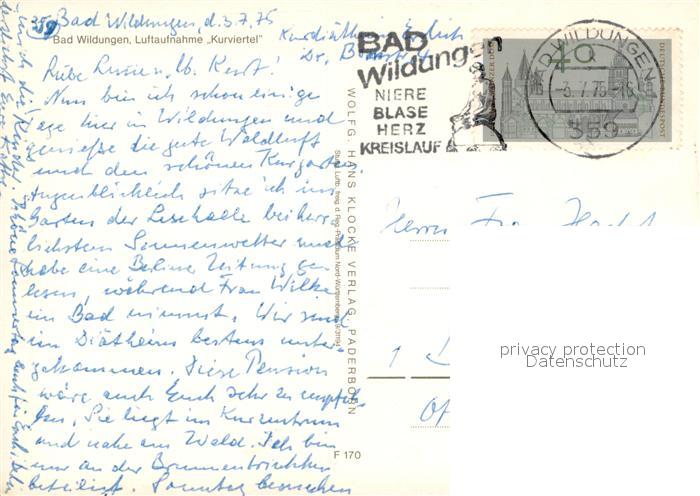 359 Bad Wildungen, d. 3.7.75
Bad Wildungen, Luftaufnahme „Kurviertel"
Kurdiätheim Erlich
Dr. 
BAD
Wildungen
NIERE
BLASE
HERZ
KREISLAUF
BAD WILDUNGEN
-3.7.75-16
359
40
DEUTSCHE BUNDESPOST
Liebe lb. Kurt!
Nun bin ich schon einige
Tage hier in Wildungen und
genieße die gute Waldluft
und den schönen Kurgarten
Augenblicklich sitze ich im
Garten der Lesehalle bei herr-
lichstem Sonnenwetter und
habe eine Berliner Zeitung ge-
lesen, während Frau Wilke
im Bad nimmt. Wir sind
im Diätheim bestens unter-
gekommen. Diese Pension
wäre auch Euch sehr zu empfeh-
len. Sie liegt im Kurzentrum
und nahe am Wald. Ich bin
nur an der Brunnentrinkkur
beteiligt. Sonntag besuchen
mich die Kinder.
WOLFG. HANS KLOCKE VERLAG, PADERBORN
F 170
Herrn Fr
1
privacy protection
Datenschutz